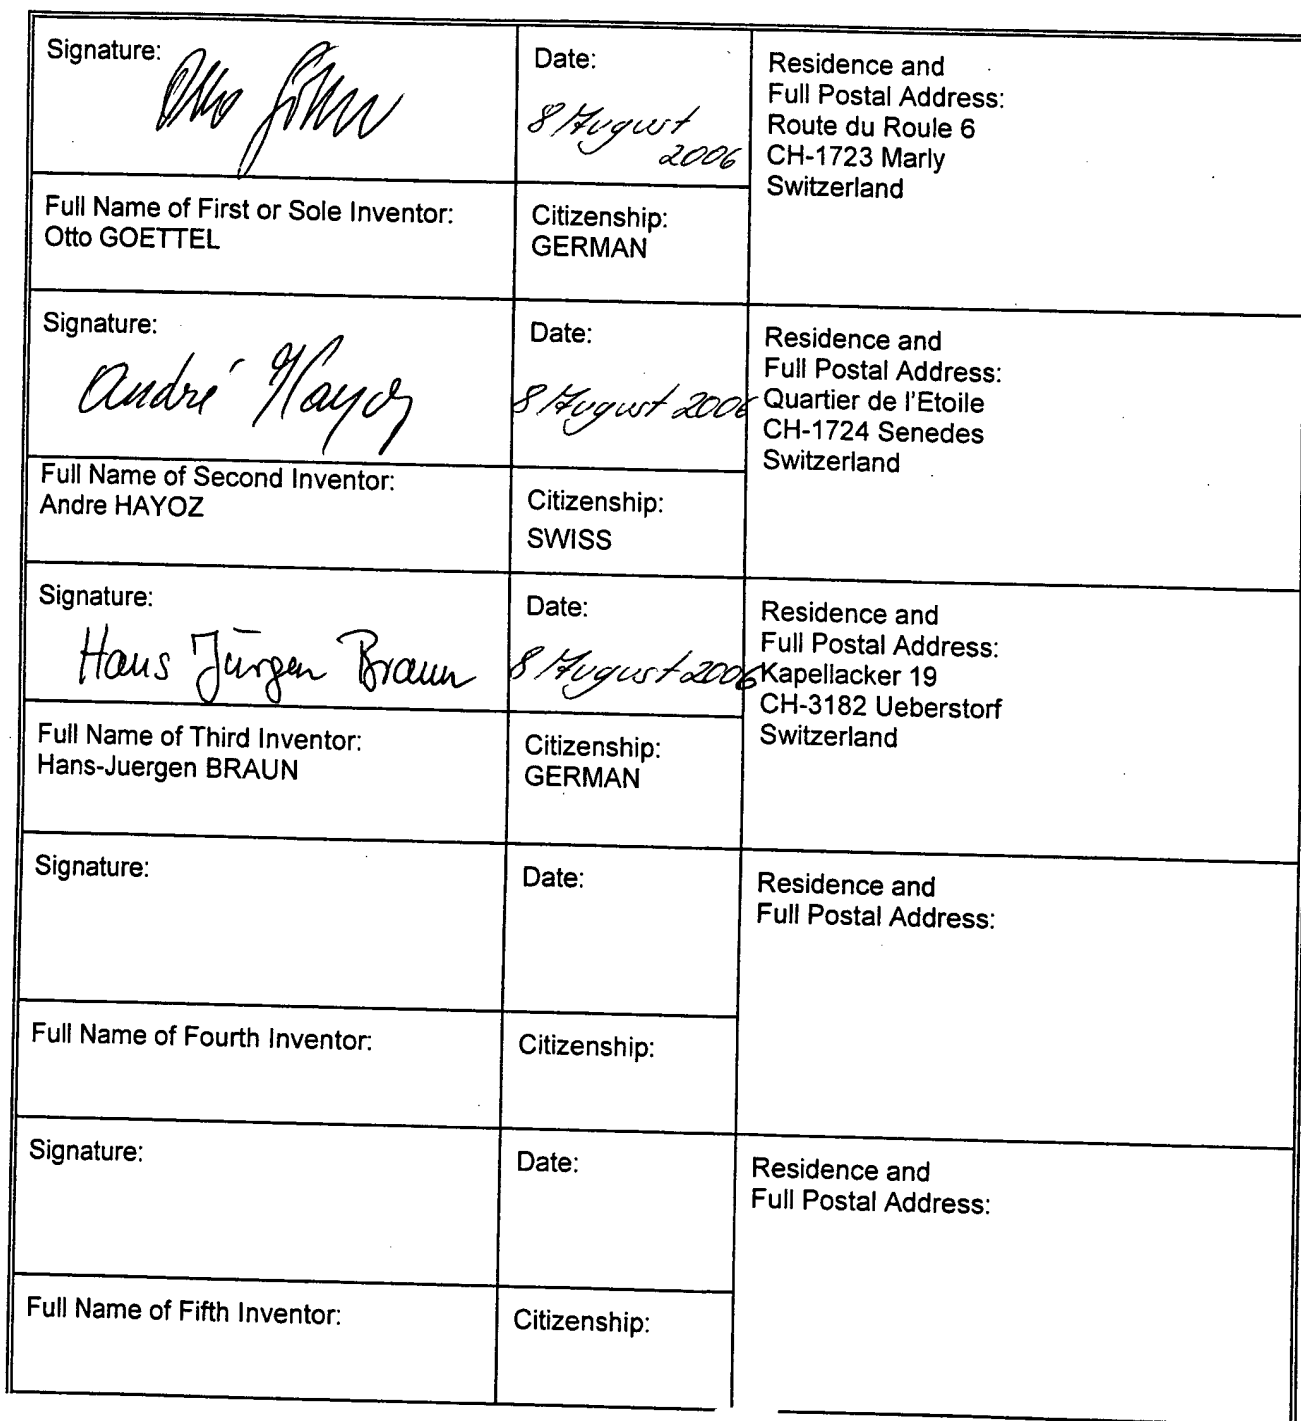 Signature:
Otto
Date:
8 August
2006
Residence and
Full Postal Address:
Route du Roule 6
CH-1723 Marly
Switzerland
Full Name of First or Sole Inventor:
Otto GOETTEL
Citizenship:
GERMAN
Signature:
André Hayoz
Date:
8 August 2006
Residence and
Full Postal Address:
Quartier de l'Etoile
CH-1724 Senedes
Switzerland
Full Name of Second Inventor:
Andre HAYOZ
Citizenship:
SWISS
Signature:
Hans Jürgen Braun
Date:
8 August 2006
Residence and
Full Postal Address:
Kapellacker 19
CH-3182 Ueberstorf
Switzerland
Full Name of Third Inventor:
Hans-Juergen BRAUN
Citizenship:
GERMAN
Signature:
Date:
Residence and
Full Postal Address:
Full Name of Fourth Inventor:
Citizenship:
Signature:
Date:
Residence and
Full Postal Address:
Full Name of Fifth Inventor:
Citizenship: